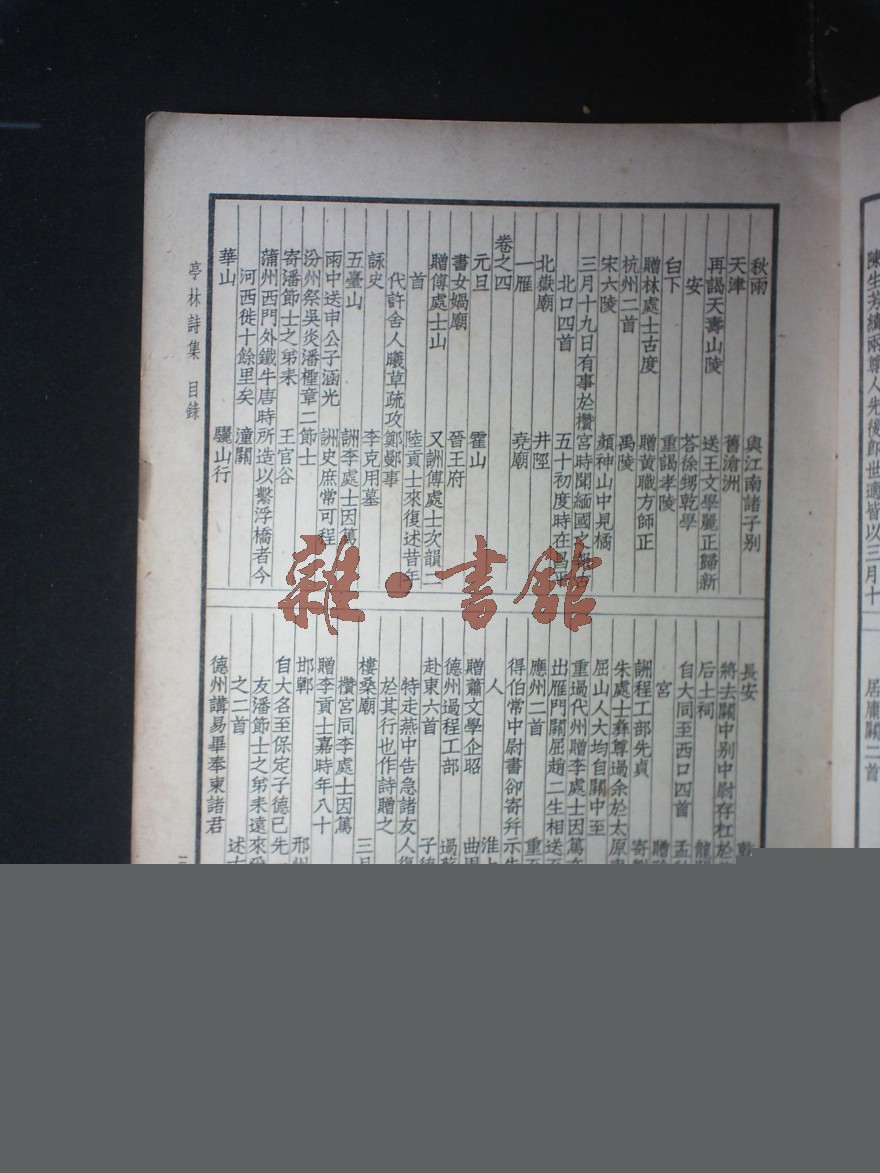 陳生芳績兩尊人先後即世適皆以三月十
居庸關二首
秋雨
與江南諸子別
天津
舊滄洲
再謁天壽山陵
送王文學麗正歸新
安
荅徐甥乾學
白下
重謁孝陵
贈林處士古度
贈黃職方師正
杭州二首
禹陵
宋六陵
顏神山中見橘
三月十九日有事於攢宮時聞緬國
北口四首
五十初度時在昌平
北嶽廟
井陘
一雁
堯廟
卷之四
元旦
霍山
書女媧廟
晉王府
贈傅處士山
又詶傅處士次韻二
首
陸貢士來復述昔年
代許舍人曦草疏攻鄭鄤事
詠史
李克用墓
五臺山
詶李處士因篤
雨中送申公子涵光
詶史庶常可程
汾州祭吳炎潘檉章二節士
寄潘節士之弟耒
王官谷
蒲州西門外鐵牛唐時所造以繫浮橋者今
河西徙十餘里矣
潼關
華山
驪山行
長安
乾
將去關中別中尉存杠於
后土祠
龍
自大同至西口四首
孟
宮
贈
詶程工部先貞
寄
朱處士彝尊過余於太原
屈山人大均自關中至
重過代州贈李處士因篤在
出雁門關屈趙二生相送至
應州二首
重至
得伯常中尉書卻寄幷示
人
淮上
贈蕭文學企昭
曲周
德州過程工部
過
赴東六首
子德
特走燕中告急諸友人復
於其行也作詩贈之
樓桑廟
三月
攢宮同李處士因篤
贈李貢士嘉時年八十
邯鄲
邢州
自大名至保定子德已先
友潘節士之弟耒遠來受
之二首
述古
德州講易畢奉柬諸君
亭林詩集 目錄
雜·書館